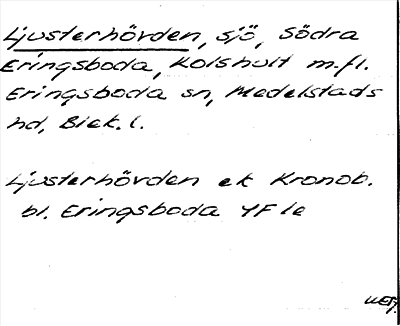 Ljusterhövden, sjö, Södra
Eringsboda, Kolshult m.fl.
Eringsboda sn, Medelstads
hd, Blek. l.
Ljusterhövden ek Kronob.
bl. Eringsboda YF le